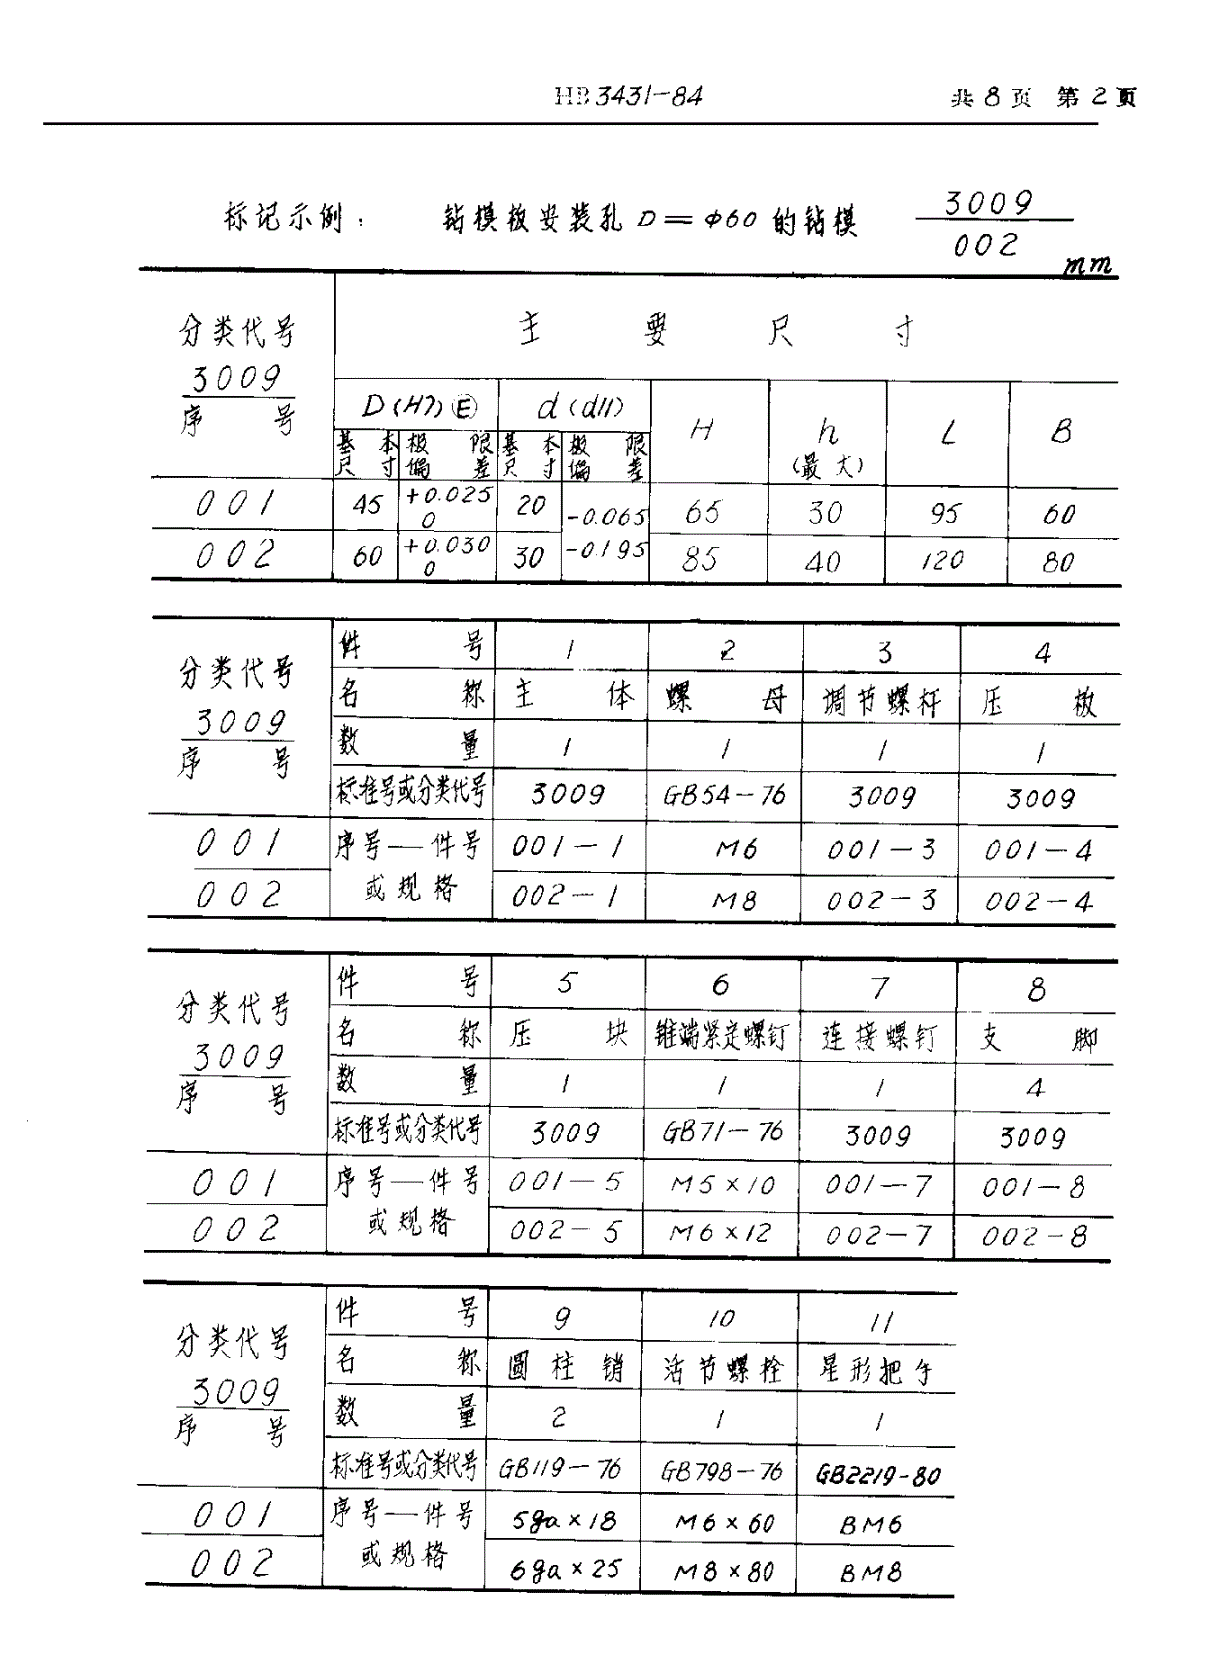 HB3431-84 共8页 第2页
标记示例: 钻模板安装孔D=Φ60的钻模 3009
002
mm
分类代号 主要尺寸
3009
序号 D(H7)Ⓔ d(d11) H h L B
基本 极限 基本 极限 (最大)
尺寸 偏差 尺寸 偏差
001 45 +0.025 0 20 -0.065 65 30 95 60
002 60 +0.030 0 30 -0.195 85 40 120 80
分类代号 件号 1 2 3 4
3009 名称 主体 螺母 调节螺杆 压板
序号 数量 1 1 1 1
标准号或分类代号 3009 GB54-76 3009 3009
001 序号—件号 001-1 M6 001-3 001-4
002 或规格 002-1 M8 002-3 002-4
分类代号 件号 5 6 7 8
3009 名称 压块 锥端紧定螺钉 连接螺钉 支脚
序号 数量 1 1 1 4
标准号或分类代号 3009 GB71-76 3009 3009
001 序号—件号 001-5 M5×10 001-7 001-8
002 或规格 002-5 M6×12 002-7 002-8
分类代号 件号 9 10 11
3009 名称 圆柱销 活节螺栓 星形把手
序号 数量 2 1 1
标准号或分类代号 GB119-76 GB798-76 GB2219-80
001 序号—件号 5ga×18 M6×60 BM6
002 或规格 6ga×25 M8×80 BM8